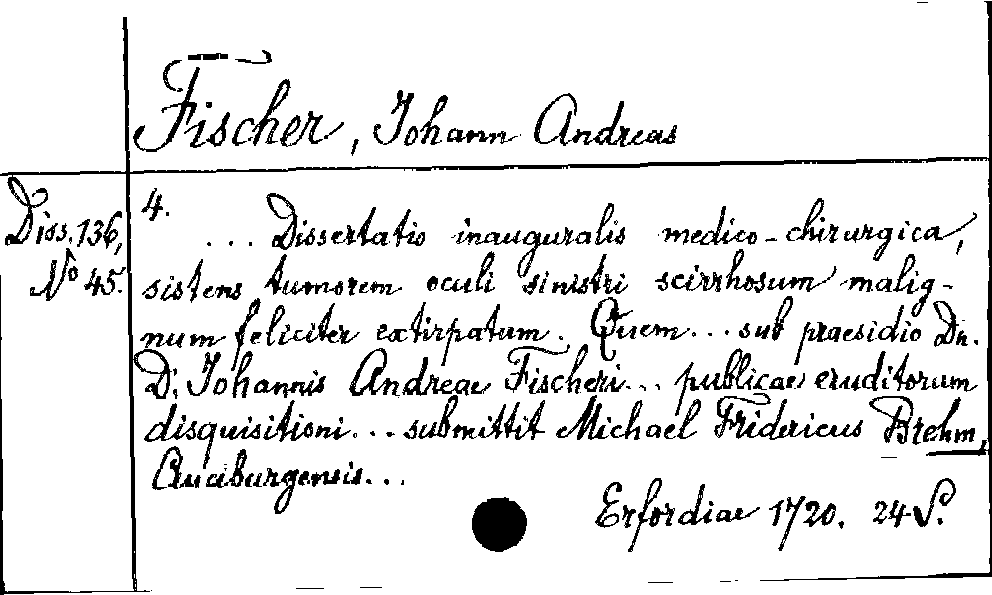 Fischer, Johann Andreas
Diss. 136,
No 45.
4.
... Dissertatio inauguralis medico-chirurgica,
sistens tumorem oculi sinistri scirrhosum malig-
num feliciter extirpatum. Quem... sub praesidio Dn.
D. Johannis Andreae Fischeri... publicae eruditorum
disquisitioni... submittit Michael Fridericus Brehm,
Erfordiae 1720. 24 S.